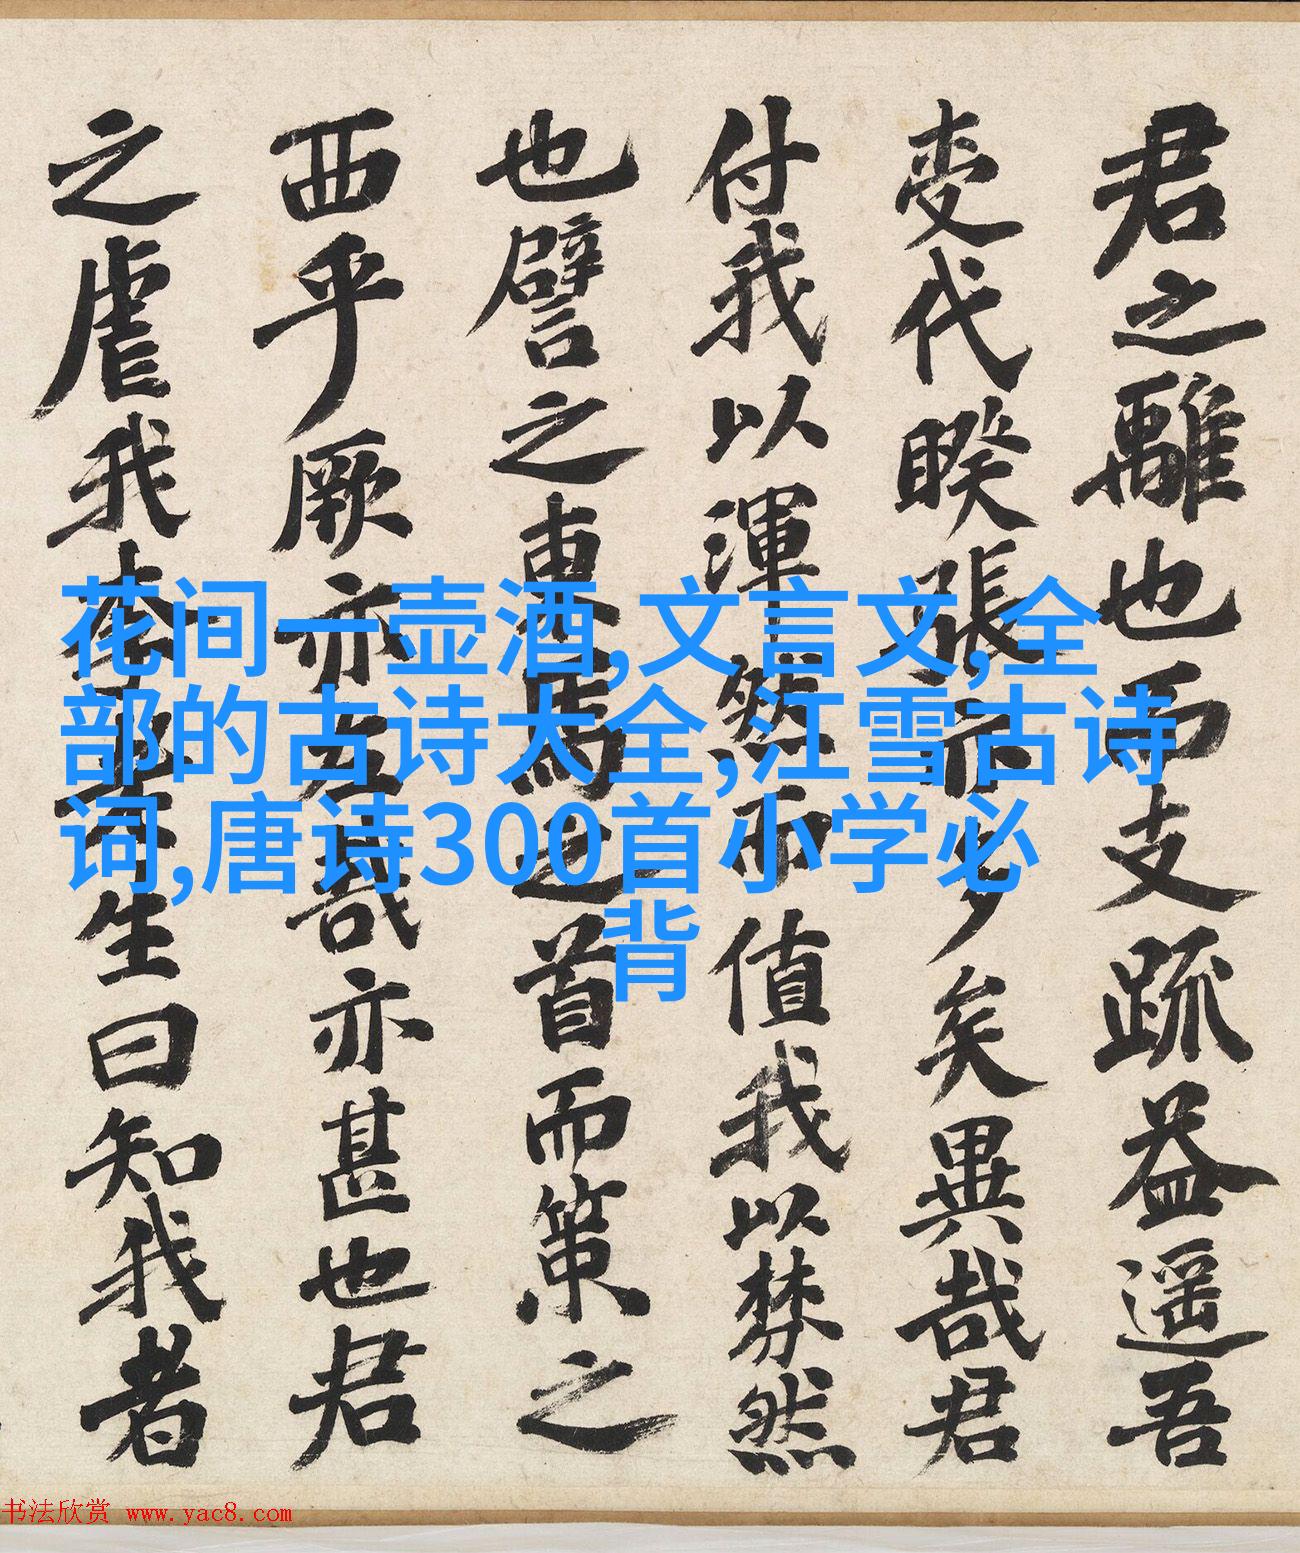 君之離也而支疏益遥吾
代睽張多矣異哉君
付我以渾然而值我以棼然
也譬之東馬之首而策之
西乎厥亦哉亦甚也君
之虐我生曰知我者
花间一壶酒,文言文,全
部的古诗大全,江雪古诗
词,唐诗300首小学必
背
书法欣赏 www.yac8.com